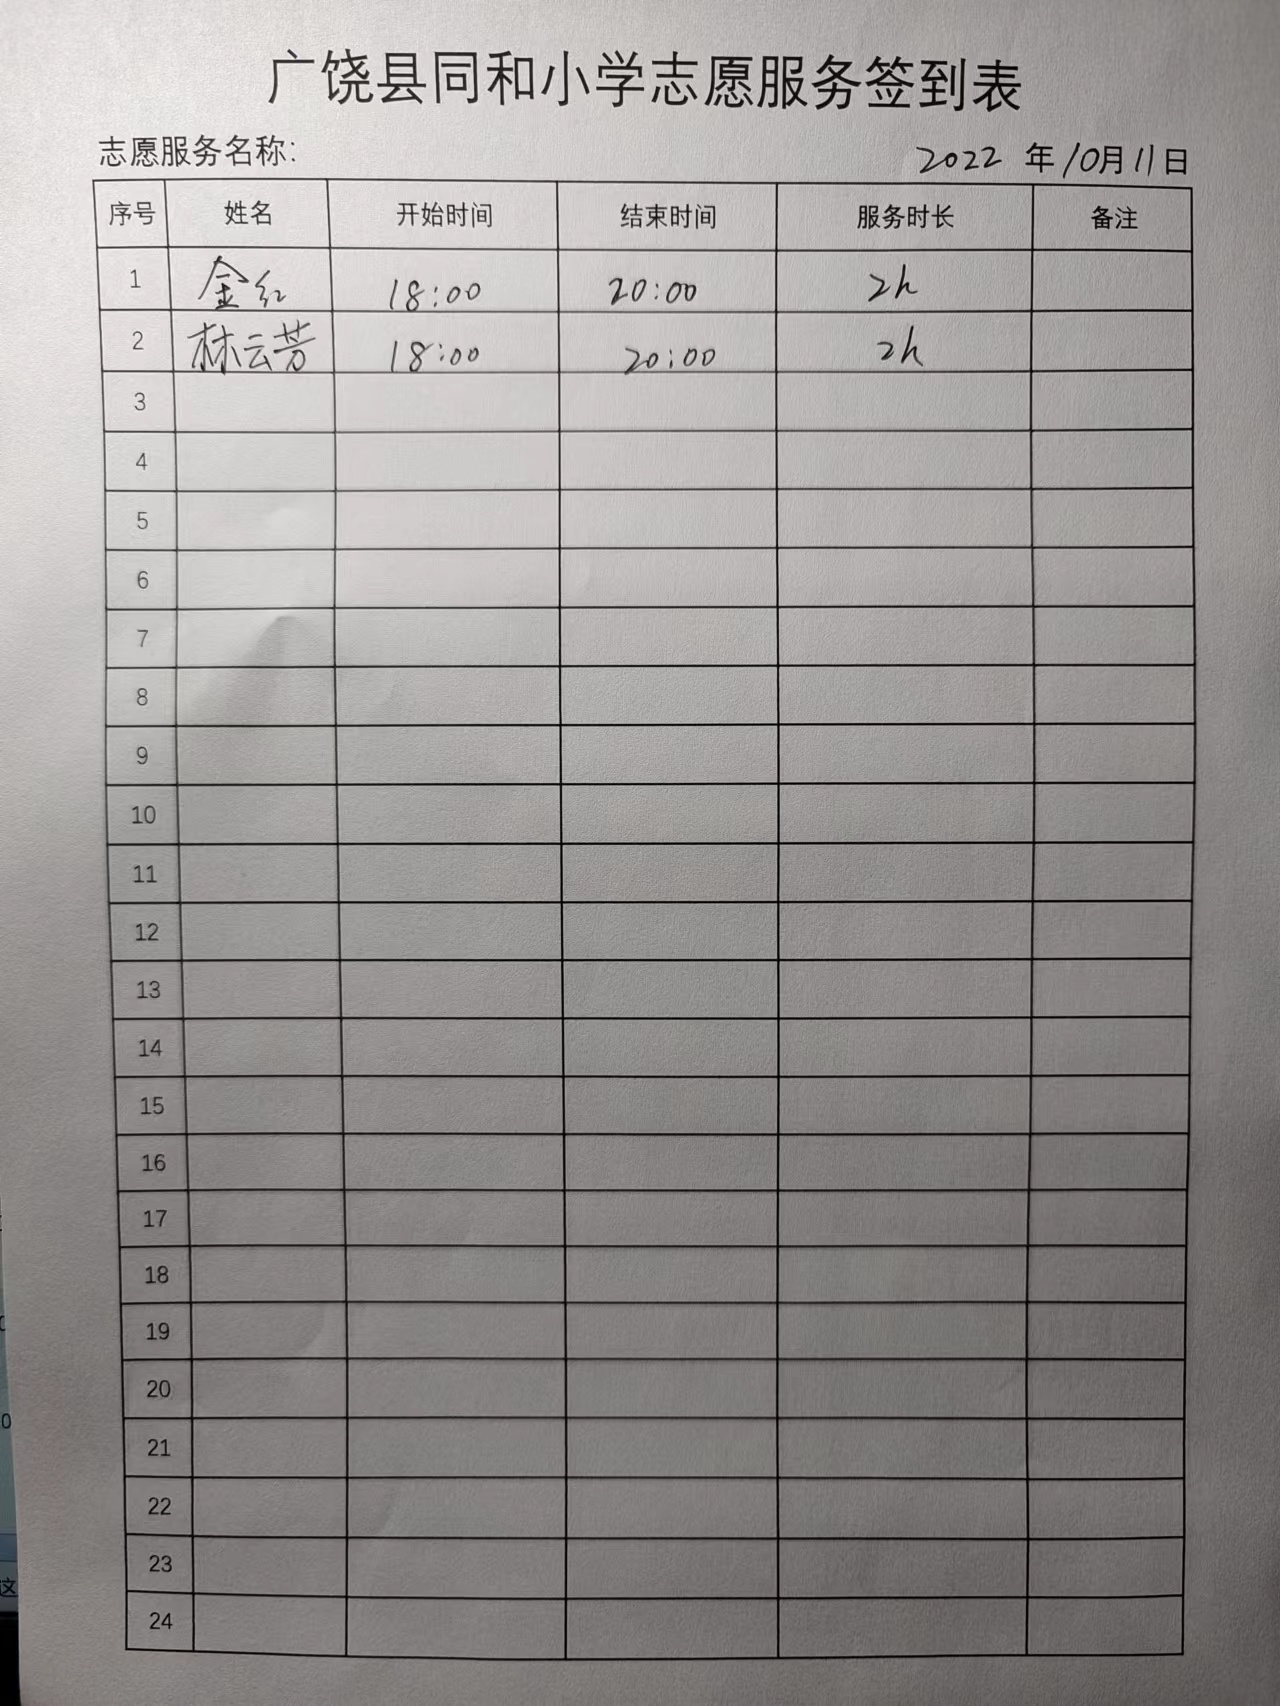 广饶县同和小学志愿服务签到表
志愿服务名称：
2022 年10月11日
序号 姓名 开始时间 结束时间 服务时长 备注
1 金红 18:00 20:00 2h
2 林云芳 18:00 20:00 2h
3
4
5
6
7
8
9
10
11
12
13
14
15
16
17
18
19
20
21
22
23
24
这